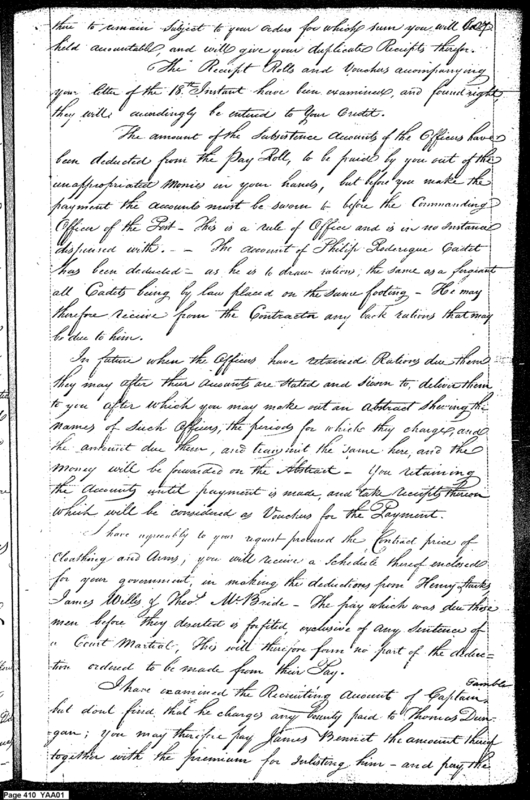 there to remain subject to your orders for which sum you will be
held accountable, and will give your duplicate Receipts therefor.
The Receipt Rolls and Vouchers accompanying
your letter of the 18th Instant have been examined, and found right,
they will accordingly be entered to Your Credit.
The amount of the Subsistence Accounts of the Officers have
been deducted from the Pay Roll, to be paid by you out of the
unappropriated Monies in your hands, but before you make the
payment the accounts must be sworn to before the Commanding
Officer of the Post - This is a rule of Office and is in no instance
dispensed with. - - The account of Philip Rodereque Cadet
has been deducted - as he is to draw rations, the same as a serjeant
all Cadets being by law placed on the same footing - He may
therefore receive from the Contractor any back rations that may
be due to him.
In future when the Officers have retained Rations due them
they may after their Accounts are stated and sworn to deliver them
to you after which you may make out an Abstract shewing the
names of such Officers, the periods for which they charge, and
the amount due them, and transmit the same here, and the
Money will be forwarded on the Abstract - You retaining
the Accounts until payment is made, and take receipts thereon
which will be considered as Vouchers for the Payment.
I have agreeably to your request procured the Contract price of
Cloathing and Arms; you will receive a Schedule thereof enclosed
for your government, in making the deductions from Henry
James Willes & Theo. McBride - The pay which was due those
men before they deserted is forfeited, exclusive of any sentence of
a Court Martial, This will therefore form no part of the deduc-
tion ordered to be made from their Pay.
I have examined the Recruiting Account of Captain
but dont find that he charges any bounty paid to Thomas Dun-
gan; you may therefore pay James Bennet the amount thereof
together with the premium for Inlisting him - and pay the
Page 410 YAA01